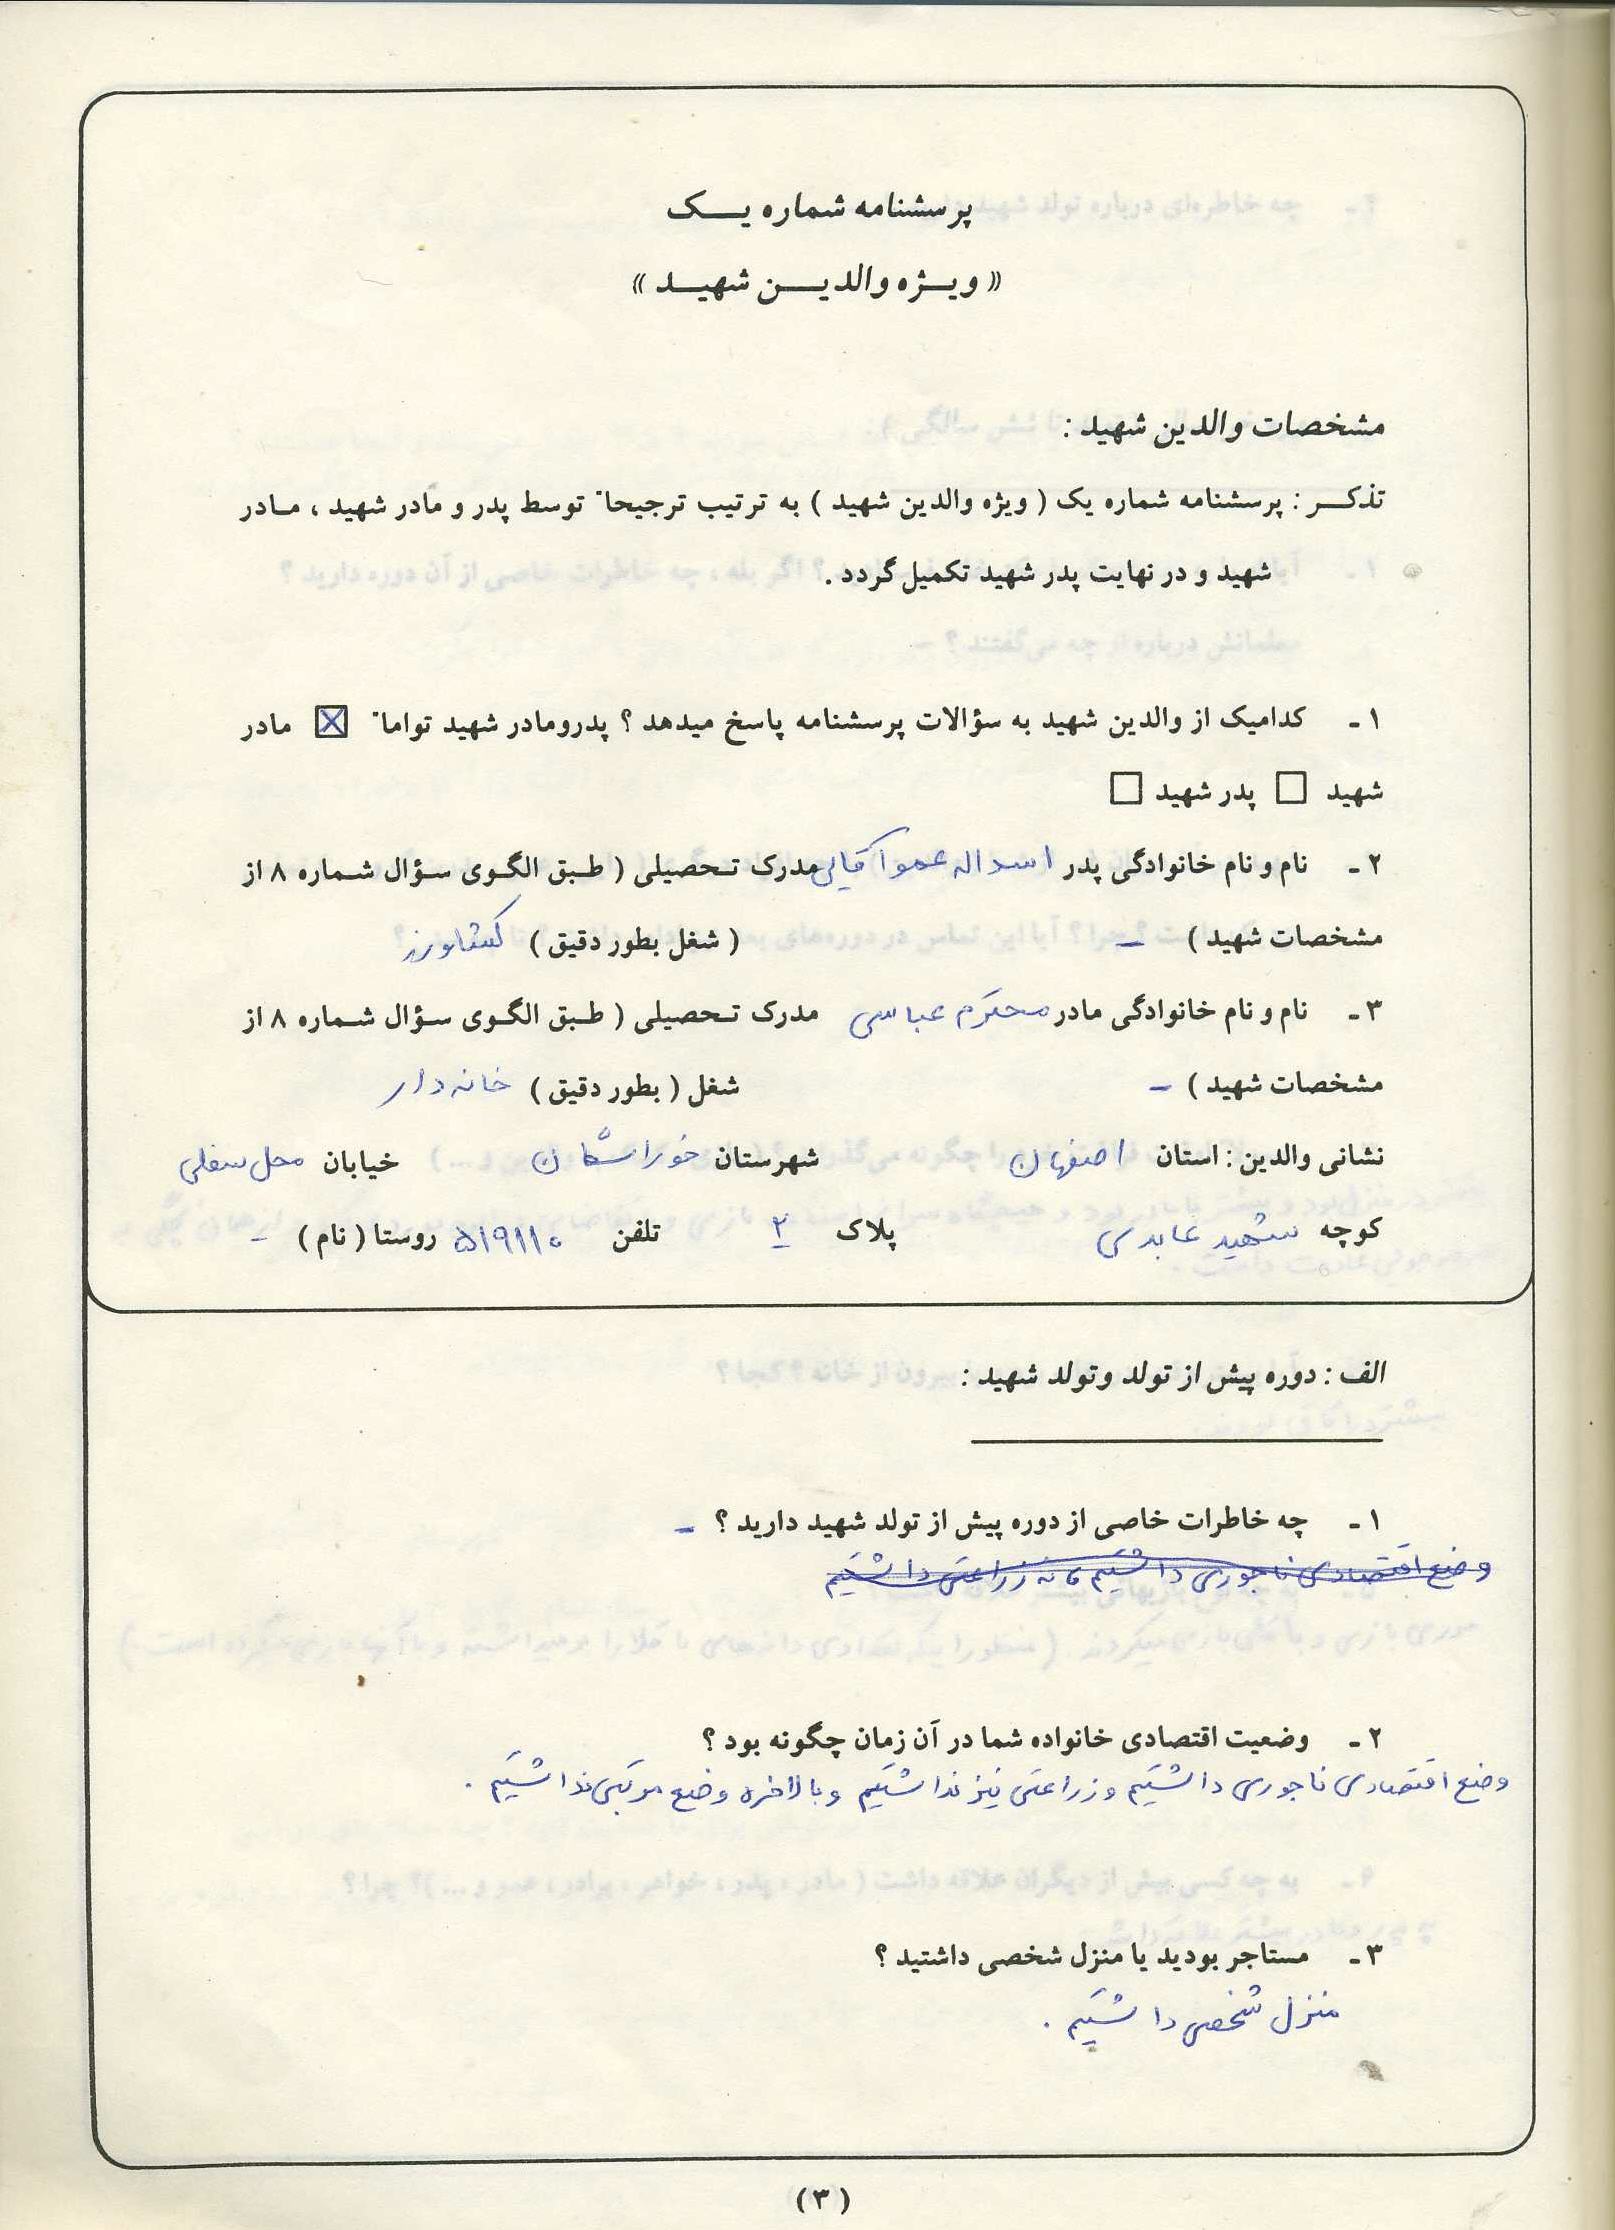 پرسشنامه شماره یک
« ویژه والدین شهید »
مشخصات والدین شهید :
تذکر : پرسشنامه شماره یک ( ویژه والدین شهید ) به ترتیب ترجیحاً توسط پدر و مادر شهید ، مادر
شهید و در نهایت پدر شهید تکمیل گردد .
۱ - کدامیک از والدین شهید به سؤالات پرسشنامه پاسخ میدهد ؟ پدرومادر شهید تواماً ☒ مادر
شهید ☐ پدر شهید ☐
۲ - نام و نام خانوادگی پدر اسداله عموآقایی مدرک تحصیلی ( طبق الگوی سؤال شماره ۸ از
مشخصات شهید ) - ( شغل بطور دقیق ) کشاورز
۳ - نام و نام خانوادگی مادر محترم عباسی مدرک تحصیلی ( طبق الگوی سؤال شماره ۸ از
مشخصات شهید ) - شغل ( بطور دقیق ) خانه دار
نشانی والدین : استان اصفهان شهرستان خوراسگان خیابان محل سفلی
کوچه شهید عابدی پلاک ۲ تلفن ۵۱۹۱۱۰ روستا ( نام ) -
الف : دوره پیش از تولد وتولد شهید :
۱ - چه خاطرات خاصی از دوره پیش از تولد شهید دارید ؟ -
وضع اقتصادی ناجوری داشتیم زراعتی داشتیم
۲ - وضعیت اقتصادی خانواده شما در آن زمان چگونه بود ؟
وضع اقتصادی ناجوری داشتیم و زراعتی نیز نداشتیم و بالاخره وضع مرتبی نداشتیم .
۳ - مستاجر بودید یا منزل شخصی داشتید ؟
منزل شخصی داشتیم .
( ۳ )